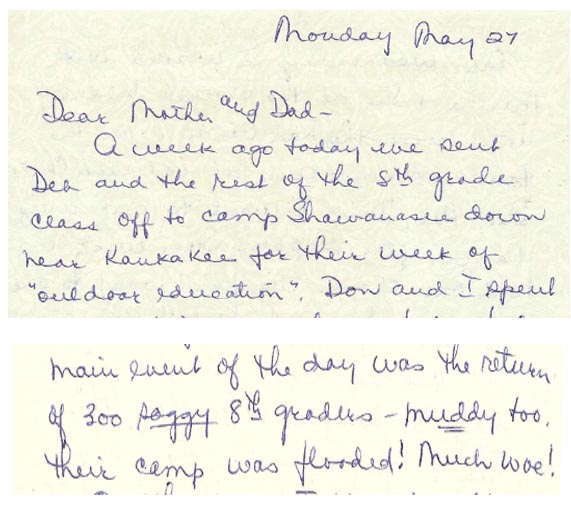 Monday May 27
Dear Mother and Dad-
A week ago today we sent
Deb and the rest of the 8th grade
class off to camp Shawanasee down
near Kankakee for their week of
"outdoor education". Don and I spent
main event of the day was the return
of 300 soggy 8th graders - muddy too.
Their camp was flooded! Much woe!